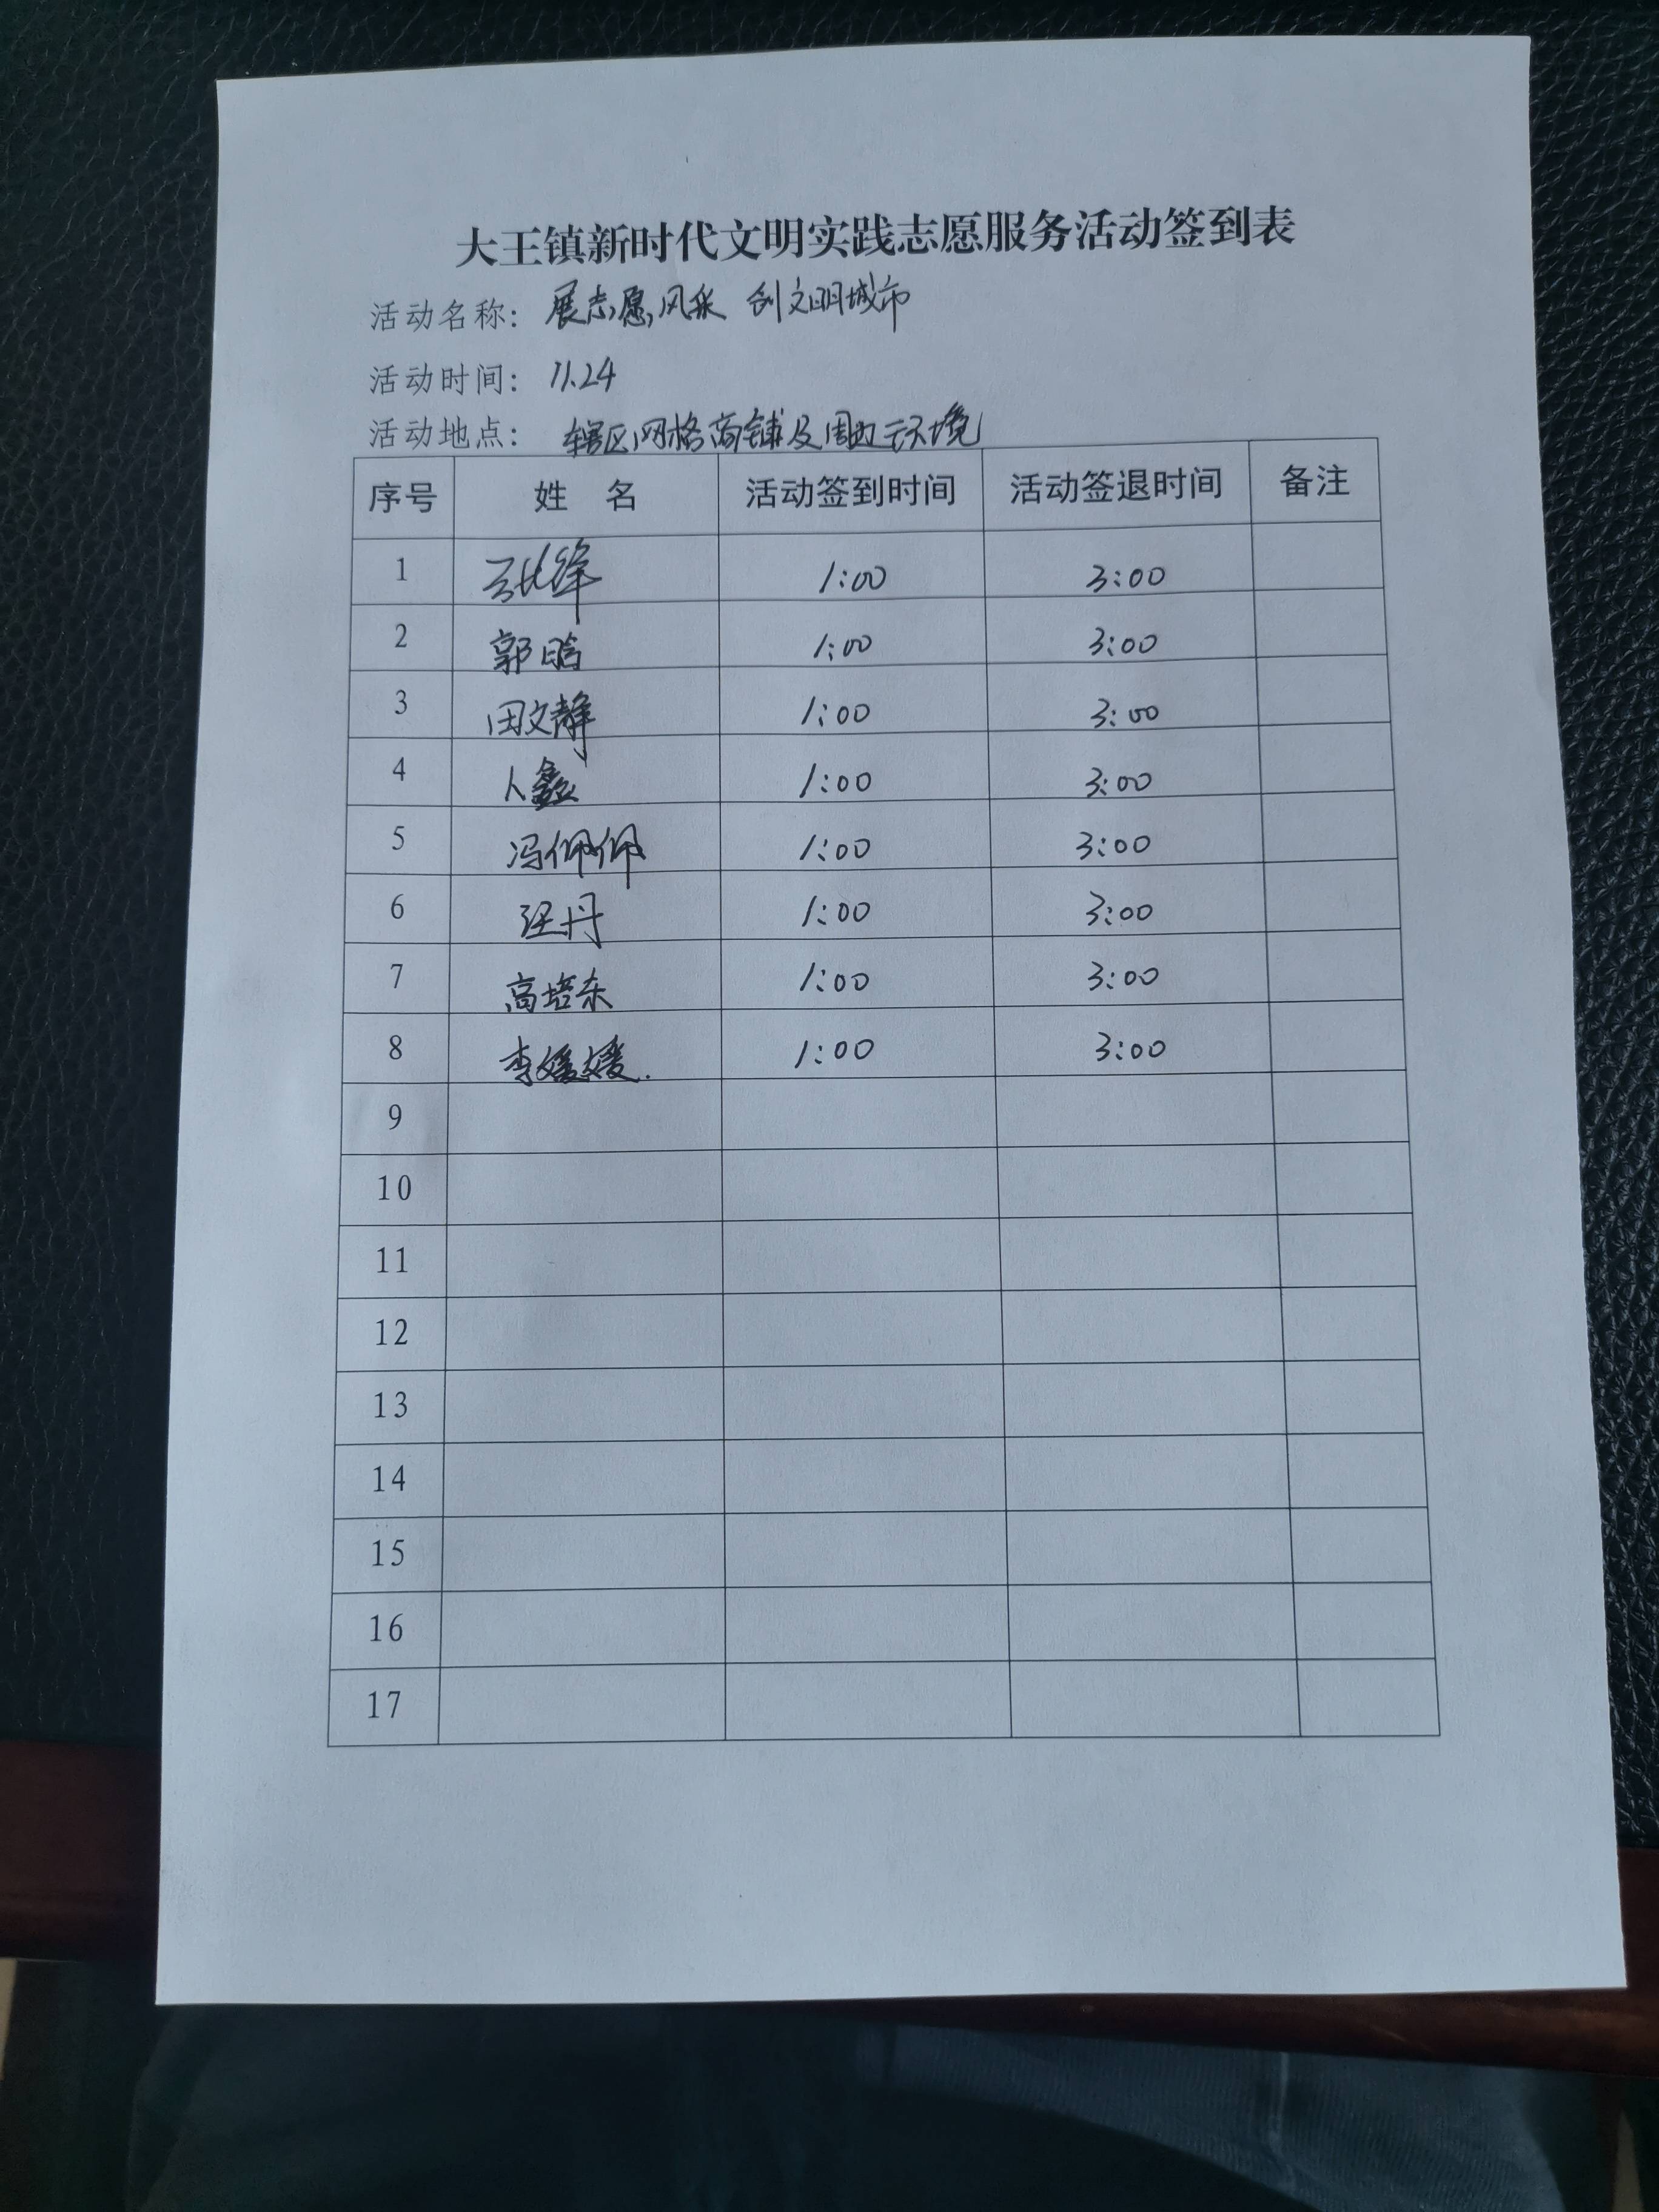 大王镇新时代文明实践志愿服务活动签到表
活动名称: 展志愿风采 创文明城市
活动时间: 11.24
活动地点: 辖区网格商铺及周边环境
序号 姓 名 活动签到时间 活动签退时间 备注
1 1:00 3:00
2 郭晗 1:00 3:00
3 田文静 1:00 3:00
4 人鑫 1:00 3:00
5 冯佩佩 1:00 3:00
6 汪丹 1:00 3:00
7 高培东 1:00 3:00
8 李媛媛. 1:00 3:00
9
10
11
12
13
14
15
16
17